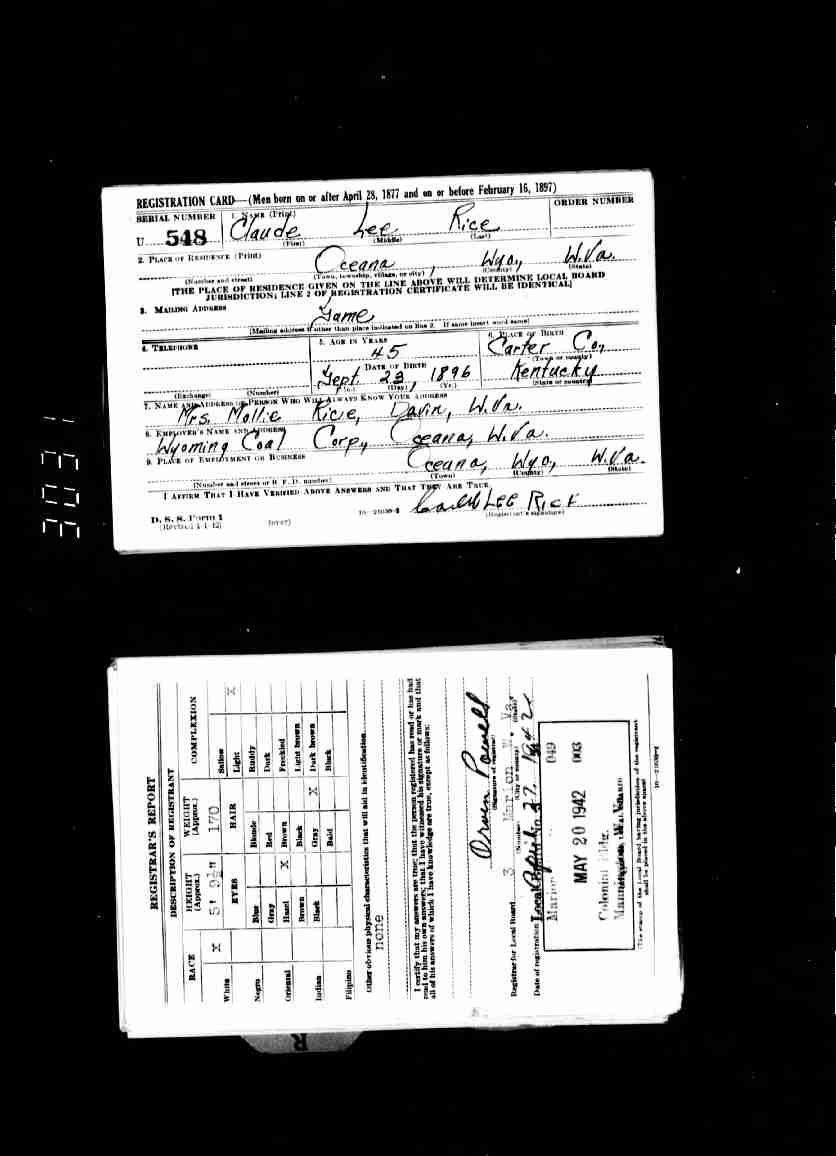 REGISTRATION CARD—(Men born on or after April 28, 1877 and on or before February 16, 1897)
SERIAL NUMBER 1. NAME (Print) ORDER NUMBER
U 548 Claude Lee Rice
(First) (Middle) (Last)
2. PLACE OF RESIDENCE (Print)
Oceana, Wyo, W.Va.
(Number and street) (Town, township, village, or city) (County) (State)
[THE PLACE OF RESIDENCE GIVEN ON THE LINE ABOVE WILL DETERMINE LOCAL BOARD
JURISDICTION; LINE 2 OF REGISTRATION CERTIFICATE WILL BE IDENTICAL]
3. MAILING ADDRESS
Same
[Mailing address if other than place indicated on line 2. If same insert word same]
4. TELEPHONE 5. AGE IN YEARS 6. PLACE OF BIRTH
45 Carter Co,
DATE OF BIRTH (Town or county)
Sept. 23, 1896 Kentucky
(Exchange) (Number) (Mo.) (Day) (Yr.) (State or country)
7. NAME AND ADDRESS OF PERSON WHO WILL ALWAYS KNOW YOUR ADDRESS
Mrs. Mollie Rice, Davin, W.Va.
8. EMPLOYER'S NAME AND ADDRESS
Wyoming Coal Corp, Oceana, W.Va.
9. PLACE OF EMPLOYMENT OR BUSINESS
Oceana, Wyo, W.Va.
(Number and street or R. F. D. number) (Town) (County) (State)
I AFFIRM THAT I HAVE VERIFIED ABOVE ANSWERS AND THAT THEY ARE TRUE.
D. S. S. Form 1
(Revised 4-1-42) (over) 16—21630-2 LEE RICE
(Registrant's signature)
3031
REGISTRAR'S REPORT
DESCRIPTION OF REGISTRANT
RACE HEIGHT (Approx.) WEIGHT (Approx.) COMPLEXION
White X 5' 9½" 170 Sallow
EYES HAIR Light X
Negro Blue Blonde Ruddy
Gray Red Dark
Oriental Hazel X Brown Freckled
Brown Black Light brown
Indian Black Gray X Dark brown
Bald Black
Filipino
Other obvious physical characteristics that will aid in identification
none
I certify that my answers are true; that the person registered has read or has had
read to him his own answers; that I have witnessed his signature or mark and that
all of his answers of which I have knowledge are true, except as follows:
Orven Powell
(Signature of registrar)
Registrar for Local Board 3 Marion W Va
(Number) (City or county) (State)
Date of registration April 27, 1942
Local Board
Marion 049
MAY 20 1942 003
Colonial Bldg.
(The stamp of the Local Board having jurisdiction of the registrant
shall be placed in the above space)
R